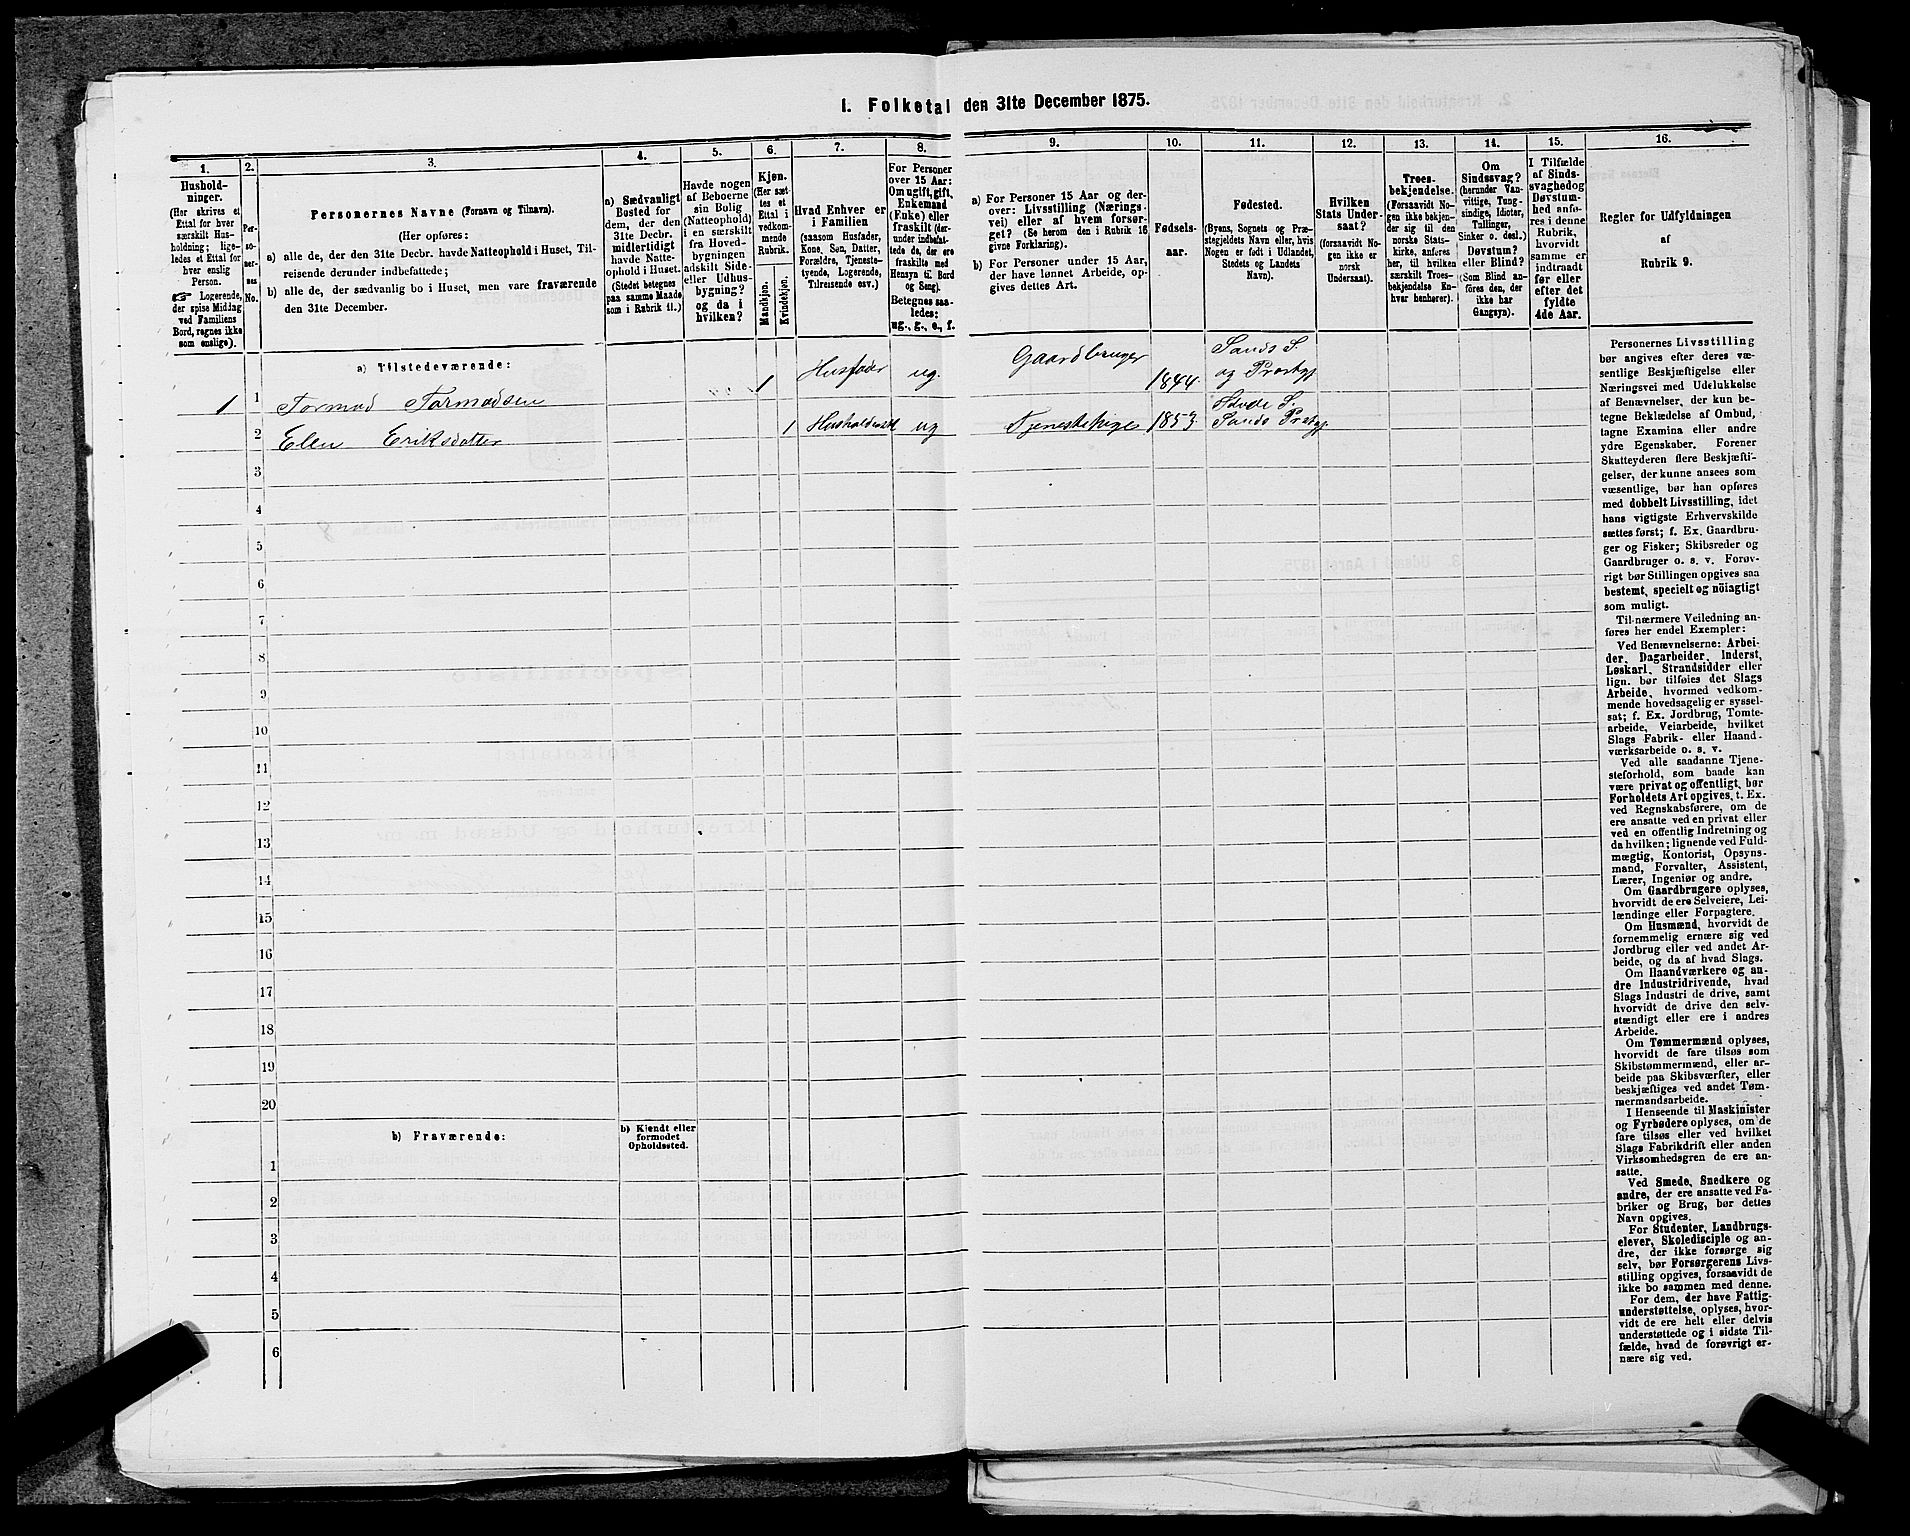 I. Folketal den 31te December 1875.
1. 2. 3. 4. 5. 6. 7. 8. 9. 10. 11. 12. 13. 14. 15. 16.
Hushold-
ninger.
(Her skrives et
Ettal for hver
særskilt Hus-
holdning; lige-
ledes et Ettal for
hver enslig
Person.
☞ Logerende,
der spise Middag
ved Familiens
Bord, regnes ikke
som enslige).
Per-
so-
ner-
nes
No.
Personernes Navne (Fornavn og Tilnavn).
(Her opføres:
a) alle de, der den 31te Decbr. havde Natteophold i Huset, Til-
reisende derunder indbefattede;
b) alle de, der sædvanlig bo i Huset, men vare fraværende
den 31te December.
a) Sædvanligt
Bosted for
dem, der den
31te Decbr.
midlertidigt
havde Natte-
ophold i Huset.
(Stedet betegnes
paa samme Maade
som i Rubrik 11.)
Havde nogen
af Beboerne
sin Bolig
(Natteophold)
i en særskilt
fra Hoved-
bygningen
adskilt Side-
eller Udhus-
bygning?
og da i
hvilken?
Kjøn.
(Her sæt-
tes et
Ettal i
vedkom-
mende
Rubrik.)
Mandkjøn.
Kvindekjøn.
Hvad Enhver er
i Familien
(saasom Husfader,
Kone, Søn, Datter,
Forældre, Tjeneste-
tyende, Logerende,
Tilreisende osv.)
For Personer
over 15 Aar:
Om ugift, gift,
Enkemand
(Enke) eller
fraskilt (der-
under indbefat-
tede de, der ere
fraskilte med
Hensyn til Bord
og Seng).
Betegnes saa-
ledes:
ug., g., e., f.
a) For Personer 15 Aar og der-
over: Livsstilling (Nærings-
vei) eller af hvem forsør-
get? (Se herom den i Rubrik 16
givne Forklaring).
b) For Personer under 15 Aar,
der have lønnet Arbeide, op-
gives dettes Art.
Fødsels-
aar.
Fødested.
(Byens, Sognets og Præ-
stegjeldets Navn eller, hvis
Nogen er født i Udlandet,
Stedets og Landets
Navn).
Hvilken
Stats Under-
saat?
(forsaavidt No-
gen ikke er
norsk
Undersaat).
Troes-
bekjendelse.
(Forsaavidt No-
gen ikke bekjen-
der sig til den
norske Stats-
kirke, anføres
her, til hvilken
særskilt Troes-
bekjendelse En-
hver henhører).
Om
Sindssvag?
(herunder Van-
vittige, Tung-
sindige, Idioter,
Tullinger,
Sinker o. desl.)
Døvstum?
eller Blind?
(Som Blind an-
føres den, der
ikke har
Gangsyn).
I Tilfælde
af Sinds-
svaghed og
Døvstum-
hed anfø-
res i denne
Rubrik,
hvorvidt
samme er
indtraadt
før eller
efter det
fyldte
4de Aar.
Regler for Udfyldningen
af
Rubrik 9.
a) Tilstedeværende:
1 1 Tormod Tormodsen 1 Husfader ug. Gaardbruger 1844. Sands S.
og Præstgj
2 Elen Eriksdatter 1 ug Tjenestepige 1853. S.
Sands Prstgj.
3
4
5
6
7
8
9
10
11
12
13
14
15
16
17
18
19
20
b) Fraværende:
b) Kjendt eller
formodet
Opholdssted.
1
2
3
4
5
6
Personernes Livsstilling
bør angives efter deres væ-
sentlige Beskjæftigelse eller
Næringsvei med Udelukkelse
af Benævnelser, der kun be-
tegne Beklædelse af Ombud,
tagne Examina eller andre
ydre Egenskaber. Forener
Skatteyderen flere Beskjæfti-
gelser, der kunne ansees som
væsentlige, bør han opføres
med dobbelt Livsstilling, idet
hans vigtigste Erhvervskilde
sættes først; f. Ex. Gaardbru-
ger og Fisker; Skibsreder og
Gaardbruger o. s. v. Forøv-
rigt bør Stillingen opgives saa
bestemt, specielt og nöiagtigt
som muligt.
Til nærmere Veiledning an-
føres her endel Exempler:
Ved Benævnelserne: Arbei-
der, Dagarbeider, Inderst,
Løskarl, Strandsidder eller
lign. bør tilføies det Slags
Arbeide, hvormed vedkom-
mende hovedsagelig er syssel-
sat; f. Ex. Jordbrug, Tomte-
arbeide, Veiarbeide, hvilket
Slags Fabrik- eller Haand-
værksarbeide o. s. v.
Ved alle saadanne Tjene-
steforhold, som baade kan
være privat og offentligt, bør
Forholdets Art opgives, t. Ex.
ved Regnskabsførere, om de
ere ansatte ved en privat eller
ved en offentlig Indretning og
da hvilken; lignende ved Fuld-
mægtig, Kontorist, Opsyns-
mand, Forvalter, Assistent,
Lærer, Ingeniør og andre.
Om Gaardbrugere oplyses,
hvorvidt de ere Selveiere, Lei-
lændinge eller Forpagtere.
Om Husmænd, hvorvidt de
fornemmelig ernære sig ved
Jordbrug eller ved andet Ar-
beide, og da af hvad Slags.
Om Haandværkere og an-
dre Industridrivende, hvad
Slags Industri de drive, samt
hvorvidt de drive den selv-
stændigt eller ere i andres
Arbeide.
Om Tømmermænd oplyses,
hvorvidt de fare tilsøs som
Skibstømmermænd, eller ar-
beide paa Skibsværfter, eller
beskjæftiges ved andet Tøm-
mermandsarbeide.
I Henseende til Maskinister
og Fyrbødere oplyses, om de
fare tilsøs eller ved hvilket
Slags Fabrikdrift eller anden
Virksomhedsgren de ere an-
satte.
Ved Smede, Snedkere og
andre, der ere ansatte ved Fa-
briker og Brug, bør dettes
Navn opgives.
For Studenter, Landbrugs-
elever, Skoledisciple og an-
dre, der ikke forsørge sig
selv, bør Forsørgerens Livs-
stilling opgives, forsaavidt de
ikke bo sammen med denne.
For dem, der have Fattig-
understøttelse, oplyses, hvor-
vidt de ere helt eller delvis
understøttede og i sidste Til-
fælde, hvad de forøvrigt er-
nære sig ved.